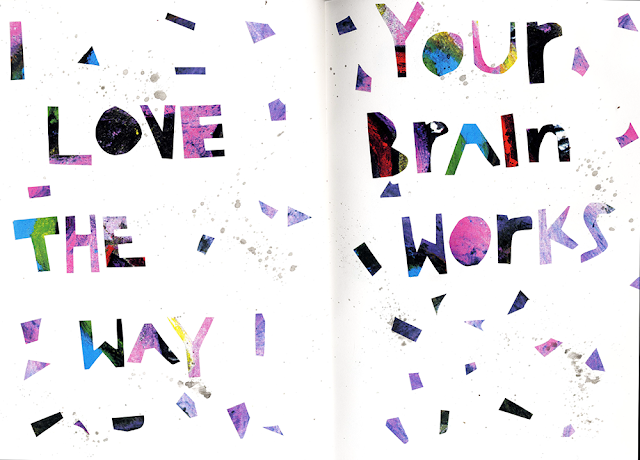 I
LOVE
THE
WAY
Your
BrAIn
Works